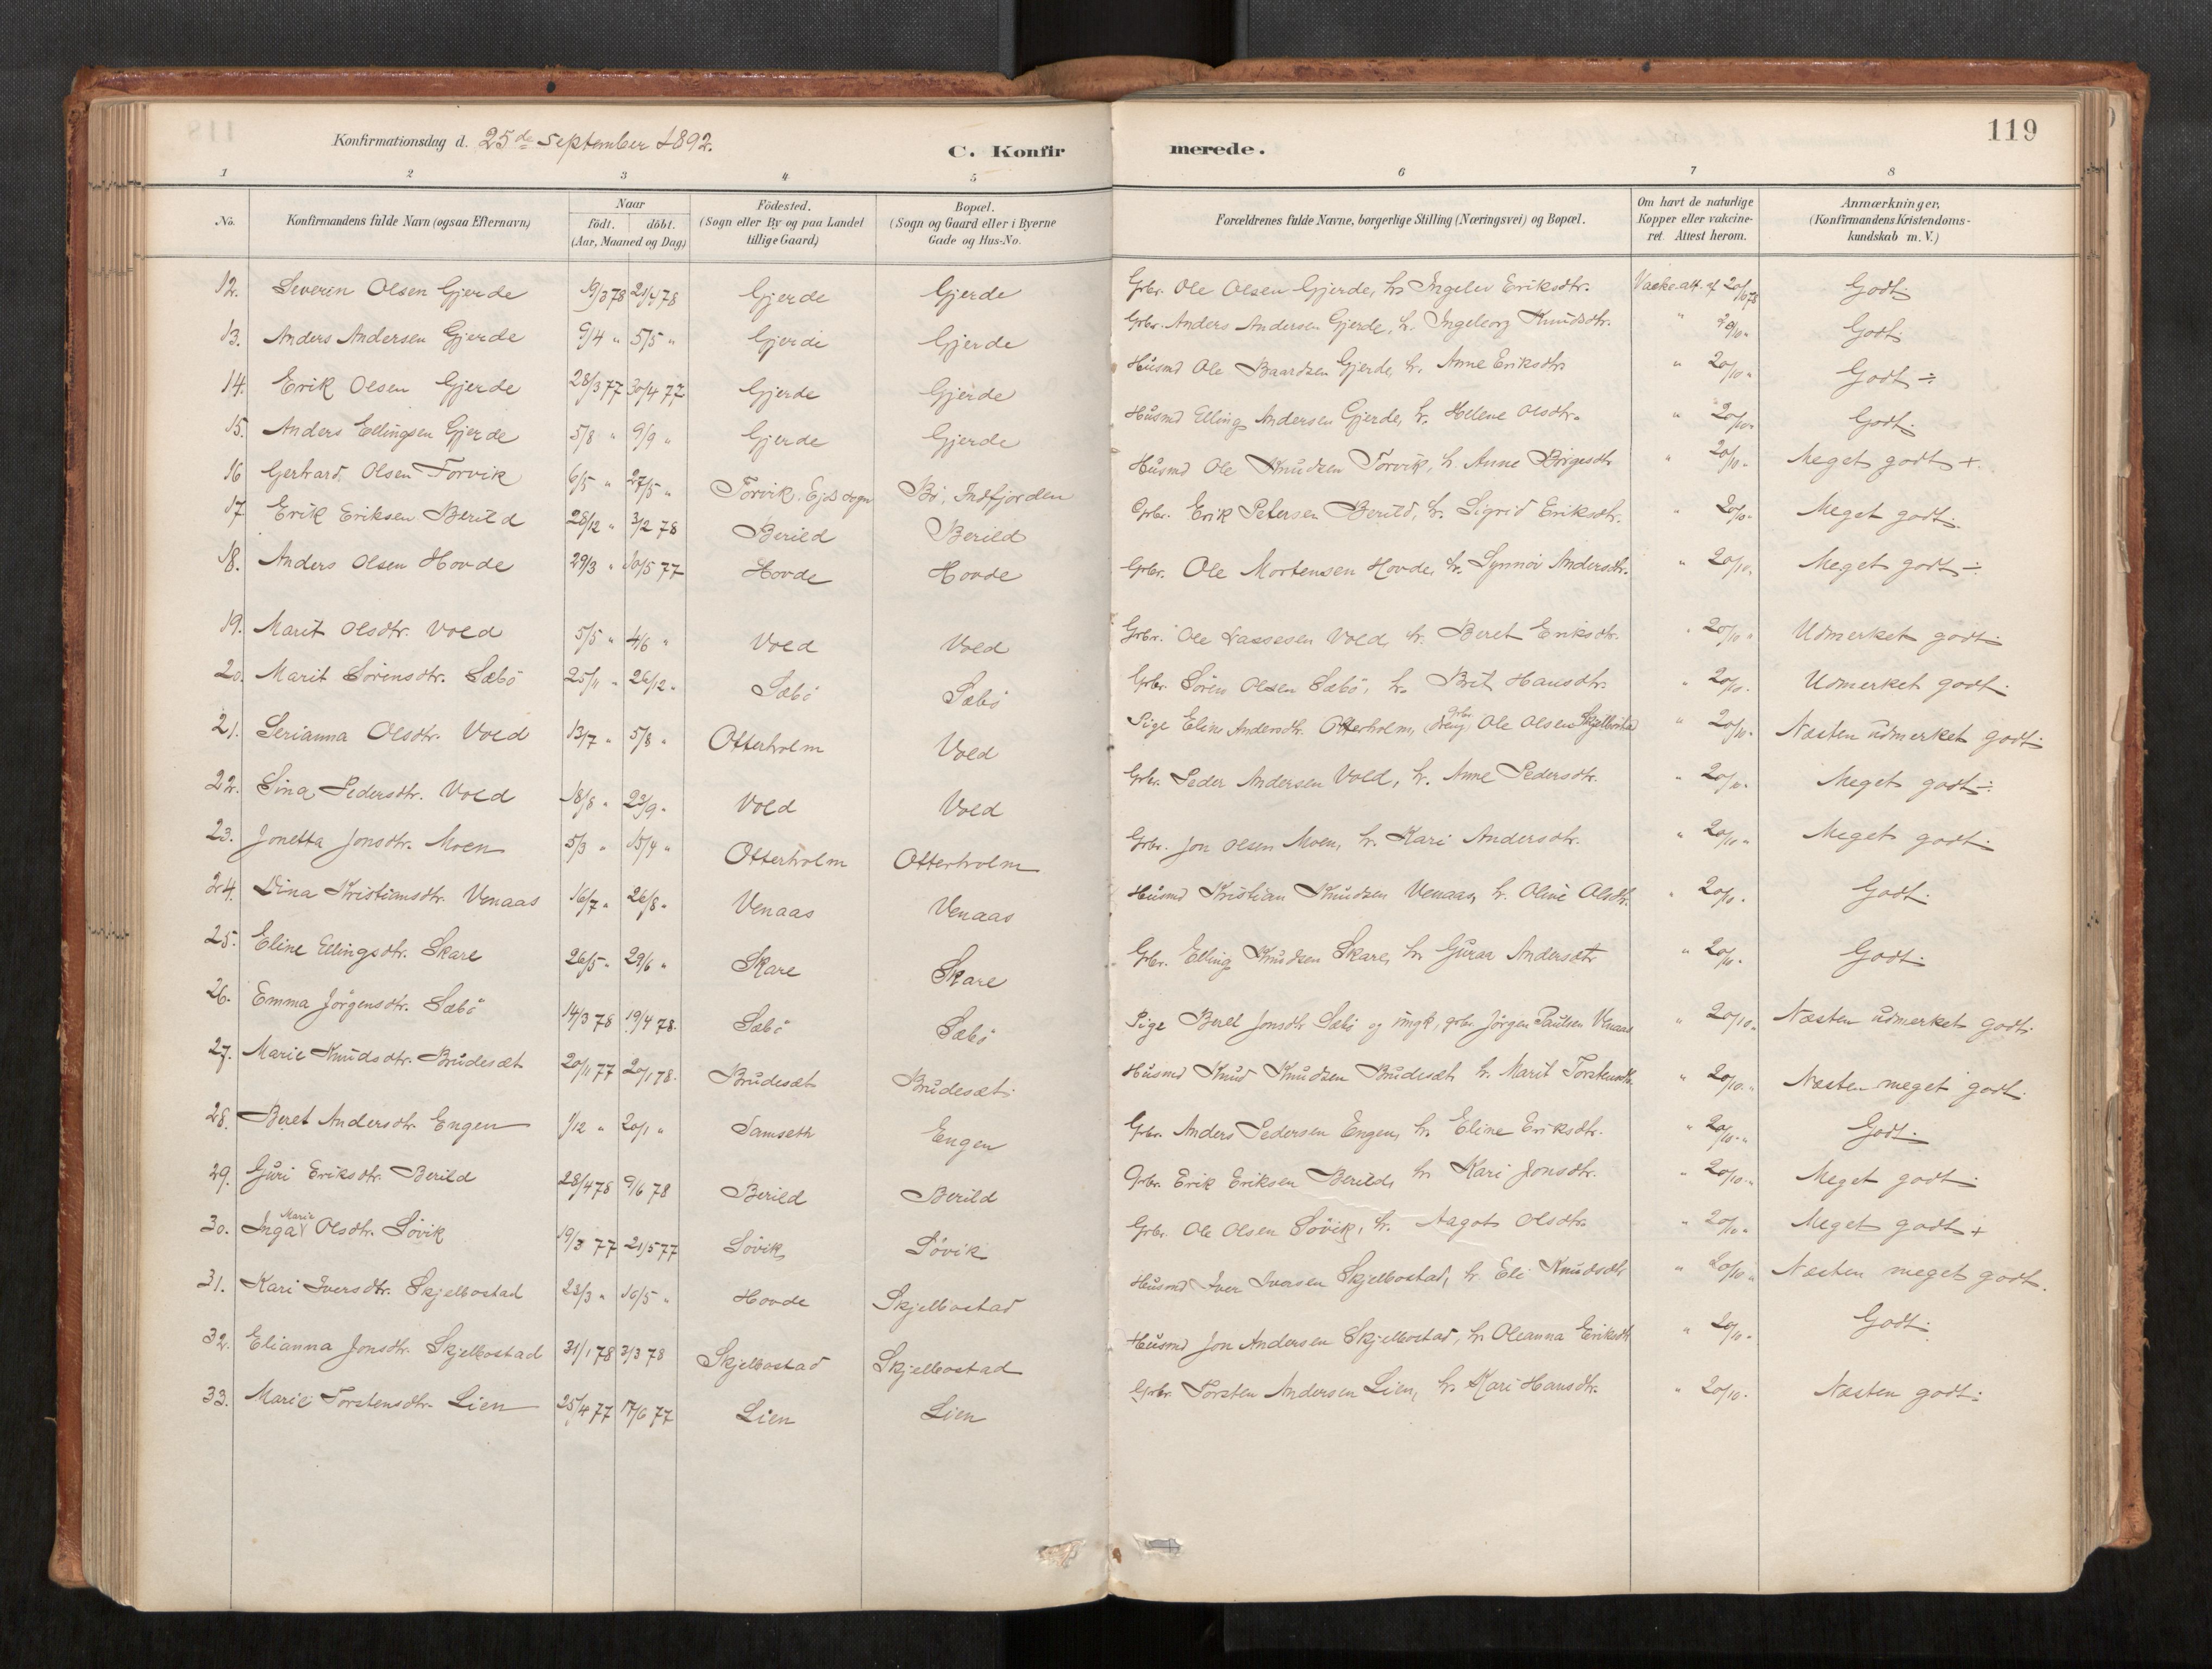 Konfirmationsdag d. 25de September 1892.
C. Konfirmerede.
119
1 2 3 4 5 6 7 8
No. Konfirmandens fulde Navn (ogsaa Efternavn) Naar födt. döbt. (Aar, Maaned og Dag) Födested. (Sogn eller By og paa Landet tillige Gaard) Bopæl. (Sogn og Gaard eller i Byerne Gade og Hus-No. Forældrenes fulde Navne, borgerlige Stilling (Næringsvei) og Bopæl. Om havt de naturlige Kopper eller vakcineret. Attest herom. Anmærkninger, (Konfirmandens Kristendomskundskab m. V.)
12. Severin Olsen Gjerde 19/3 78 21/4 78 Gjerde Gjerde Grbr. Ole Olsen Gjerde, h. Ingelev Eriksdtr. Vakc. att. af 20/10 78 Godt.
13. Anders Andersen Gjerde 9/4 " 5/5 " Gjerde Gjerde Grbr. Anders Andersen Gjerde, h. Ingeborg Knudsdtr. " 20/10 " Godt.
14. Erik Olsen Gjerde 28/3 77 30/4 77 Gjerde Gjerde Husmd Ole Baardsen Gjerde, h. Anne Eriksdtr. " 20/10 " Godt ÷
15. Anders Ellingsen Gjerde 5/8 " 9/9 " Gjerde Gjerde Husmd Elling Andersen Gjerde, h. Helene Olsdtr. " 20/10 " Godt.
16 Gerhard Olsen Torvik 6/5 " 27/5 " Torvik, Ejds sogn Bö, Indfjorden Husmd Ole Knudsen Torvik, h. Anne Börgesdtr " 20/10 " Meget godt +.
17. Erik Eriksen Berild 28/12 " 3/2 78 Berild Berild Grbr. Erik Petersen Berild, h. Sigrid Eriksdtr. " 20/10 " Meget godt.
18. Anders Olsen Hovde 29/3 " 10/5 77 Hovde Hovde Grbr. Ole Mortensen Hovde, h. Synnöv Andersdtr. " 20/10 " Meget godt ÷
19. Marit Olsdtr. Vold 5/5 " 4/6 " Vold Vold Grbr. Ole Lassesen Vold, h. Beret Eriksdtr. " 20/10 " Udmerket godt.
20. Marit Sörensdtr. Sæbö 25/11 " 26/12 " Sæbö Sæbö Grbr. Sören Olsen Sæbö, h. Brit Hansdtr. " 20/10 " Udmerket godt.
21. Serianna Olsdtr. Vold 13/7 " 5/8 " Otterholm Vold Pige Elin Andersdtr. Otterholm, Ole Olsen " 20/10 " Næsten udmerket godt.
22. Sina Pedersdtr. Vold 18/8 " 23/9 " Vold Vold Grbr. Peder Andersen Vold, h. Anne Pedersdtr. " 20/10 " Meget godt ÷
23. Jonetta Jonsdtr. Moen 5/3 " 15/4 " Otterholm Otterholm Grbr. Jon Olsen Moen, h. Kari Andersdtr. " 20/10 " Meget godt.
24. Dina Kristiansdtr. Venaas 16/7 " 26/8 " Venaas Venaas Husmd Kristian Knudsen Venaas, h. Oline Olsdtr. " 20/10 " Godt.
25. Eline Ellingsdtr. Skare 26/5 " 29/6 " Skare Skare Grbr. Elling Knudsen Skare, h. Guraa Andersdtr " 20/10 " Godt.
26. Emma Jörgensdtr. Sæbö 14/3 78 19/4 78. Sæbö Sæbö Pige Beret Jonsdtr Sæbö og ungk, grbr Jörgen Paulsen Venaas " 20/10 " Næsten udmerket godt.
27. Marie Knudsdtr. Brudesæt 20/11 77 20/1 78. Brudesæt Brudesæt. Husmd Knud Knudsen Brudesæt, h. Marit Torstensdtr. " 20/10 " Næsten meget godt.
28. Beret Andersdtr. Engen 1/12 " 20/1 " Samseth Engen Grbr. Anders Pedersen Engen, h. Eline Eriksdtr. " 20/10 " Godt.
29. Guri Eriksdtr. Berild 28/4 78 9/6 78 Berild Berild Grbr. Erik Eriksen Berild, h. Kari Jonsdtr. " 20/10 " Meget godt.
30. Inga Marie Olsdtr. Sövik 19/3 77 21/5 77 Sövik Sövik Grbr. Ole Olsen Sövik, h. Aagot Olsdtr. " 20/10 " Meget godt +
31. Kari Iversdtr. Skjelbostad 23/3 " 16/5 " Hovde Skjelbostad Husmd Iver Iversen Skjelbostad, h. Eli Knudsdtr " 20/10 " Næsten meget godt.
32. Elianna Jonsdtr. Skjelbostad 31/1 78 3/3 78 Skjelbostad Skjelbostad Husmd Jon Andersen Skjelbostad, h. Oleanna Eriksdtr " 20/10 " Godt.
33. Marie Torstensdtr. Lien 25/4 77 17/6 77 Lien Lien Grbr. Torsten Andersen Lien, h. Kari Hansdtr. " 20/10 " Næsten godt.